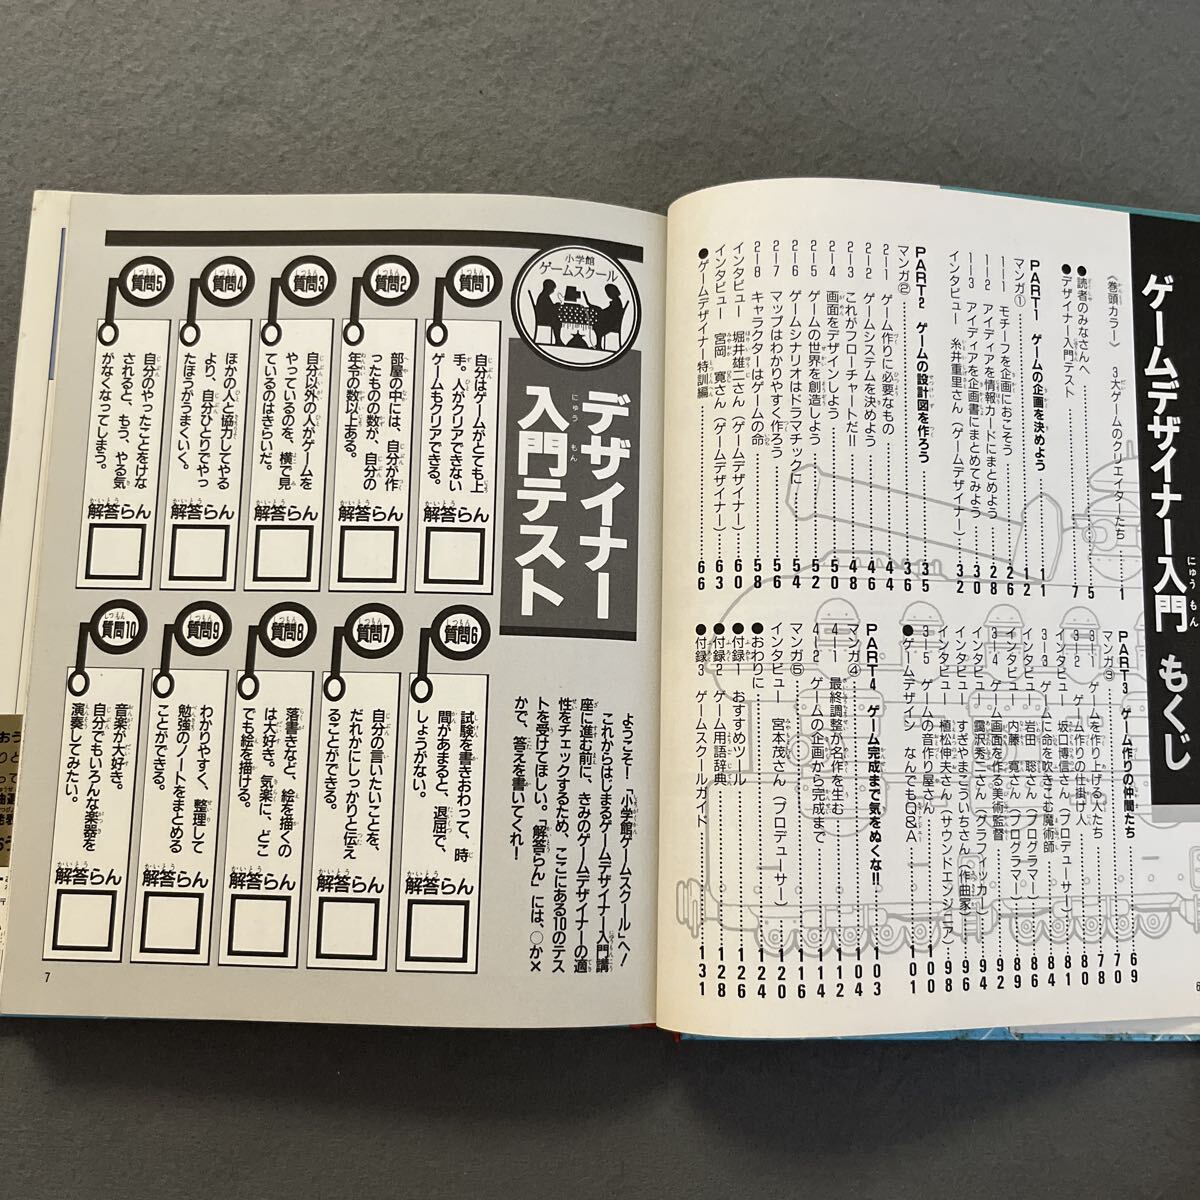 ゲームデザイナー入門 もくじ
〈巻頭カラー〉 3大ゲームのクリエイターたち…1
●読者のみなさんへ…5
●デザイナー入門テスト…7
PART1 ゲームの企画を決めよう…11
マンガ①…12
1-1 モチーフを企画におこそう…26
1-2 アイディアを情報カードにまとめよう…28
1-3 アイディアを企画書にまとめてみよう…30
インタビュー 糸井重里さん(ゲームデザイナー)…32
PART2 ゲームの設計図を作ろう…35
マンガ②…36
2-1 ゲーム作りに必要なもの…44
2-2 ゲームシステムを決めよう…46
2-3 これがフローチャートだ!!…48
2-4 画面をデザインしよう…50
2-5 ゲームの世界を創造しよう…52
2-6 ゲームシナリオはドラマチックに…54
2-7 マップはわかりやすく作ろう…56
2-8 キャラクターはゲームの命…58
インタビュー 堀井雄二さん(ゲームデザイナー)…60
インタビュー 宮岡 寛さん(ゲームデザイナー)…63
●ゲームデザイナー特訓編…66
PART3 ゲーム作りの仲間たち…69
マンガ③…70
3-1 ゲームを作り上げる人たち…78
3-2 ゲーム作りの仕掛け人…80
インタビュー 坂口博信さん(プロデューサー)…81
3-3 ゲームに命を吹きこむ魔術師…84
インタビュー 岩田 聡さん(プログラマー)…86
インタビュー 内藤 寛さん(プログラマー)…89
3-4 ゲーム画面を作る美術監督…92
インタビュー 露沢秀二さん(グラフィッカー)…94
インタビュー すぎやまこういちさん(作曲家)…96
インタビュー 植松伸夫さん(サウンドエンジニア)…98
3-5 ゲームの音作り屋さん…100
●ゲームデザイン なんでもQ&A…101
PART4 ゲーム完成まで気をぬくな!!…103
マンガ④…104
4-1 最終調整が名作を生む…112
4-2 ゲームの企画から完成まで…114
マンガ⑤…116
インタビュー 宮本茂さん(プロデューサー)…120
●おわりに…124
●付録1 おすすめツール…126
●付録2 ゲーム用語辞典…128
●付録3 ゲームスクールガイド…131
6
小学館
ゲームスクール
デザイナー
入門テスト
ようこそ!「小学館ゲームスクール」へ!
これからはじまるゲームデザイナー入門講
座に進む前に、きみのゲームデザイナーの適
性をチェックするため、ここにある10のテス
トを受けてほしい。「解答らん」には、○か×
かで、答えを書いてくれ!
質問1
自分はゲームがとても上
手。人がクリアできない
ゲームもクリアできる。
解答らん
質問2
部屋の中には、自分が作
ったものの数が、自分の
年令の数以上ある。
解答らん
質問3
自分以外の人がゲームを
やっているのを、横で見
ているのはきらいだ。
解答らん
質問4
ほかの人と協力してやる
より、自分ひとりでやっ
たほうがうまくいく。
解答らん
質問5
自分のやったことをけな
されると、もう、やる気
がなくなってしまう。
解答らん
質問6
試験を書きおわって、時
間があまると、退屈で、
しょうがない。
解答らん
質問7
自分の言いたいことを、
だれかにしっかりと伝え
ることができる。
解答らん
質問8
落書きなど、絵を描くの
は大好き。気楽に、どこ
でも絵を描ける。
解答らん
質問9
わかりやすく、整理して
勉強のノートをまとめる
ことができる。
解答らん
質問10
音楽が大好き。
自分でもいろんな楽器を
演奏してみたい。
解答らん
7